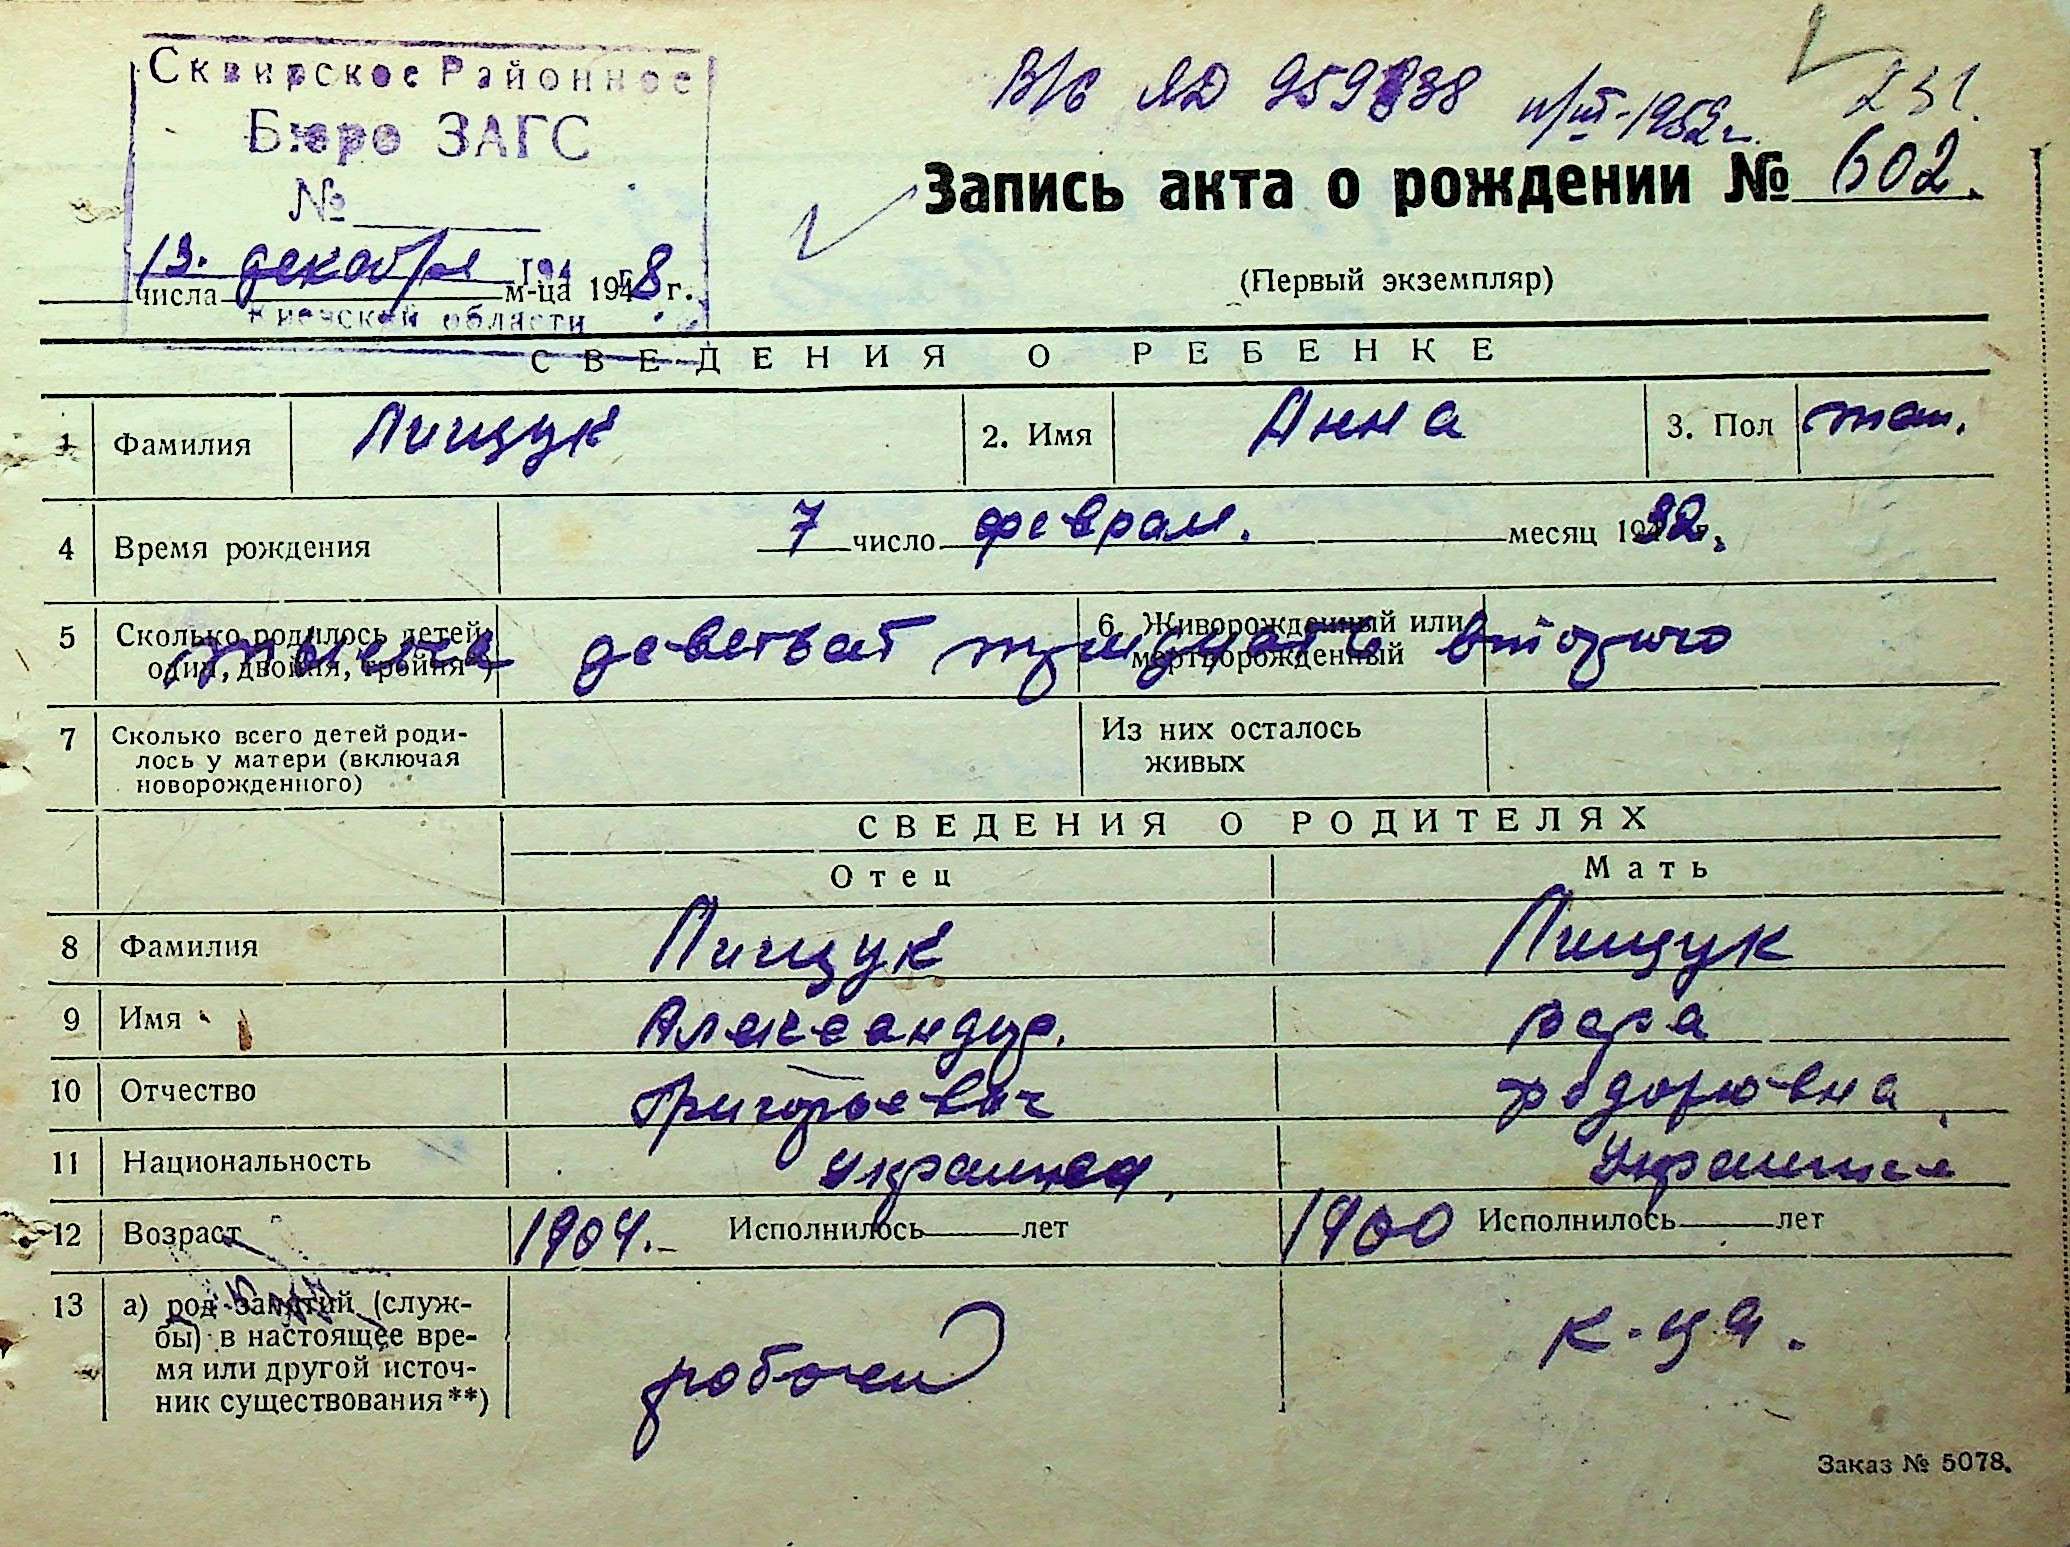 Сквирское Районное
Бюро ЗАГС
№
13. декабря м-ца 1948 г.
числа
Киевской области
В/с ЯД 959838 11/III-1952 г. 231.
Запись акта о рождении № 602.
(Первый экземпляр)
СВЕДЕНИЯ О РЕБЕНКЕ
1 Фамилия Пищук 2. Имя Анна 3. Пол жен.
4 Время рождения 7 число феврал. месяц 1932 г.
5 Сколько родилось детей один, двойня, тройня*) 6. Живорожденный или мертворожденный
тысяча деветсат тридцать второго
7 Сколько всего детей роди-
лось у матери (включая
новорожденного)
Из них осталось
живых
СВЕДЕНИЯ О РОДИТЕЛЯХ
Отец Мать
8 Фамилия Пищук Пищук
9 Имя Александр. Вера
10 Отчество Григорьевич Федоровна
11 Национальность украинец Украинка
12 Возраст 1904.- Исполнилось лет 1900 Исполнилось лет
13 а) род занятий (служ-
бы) в настоящее вре-
мя или другой источ-
ник существования**)
робочий к-ца.
Заказ № 5078.